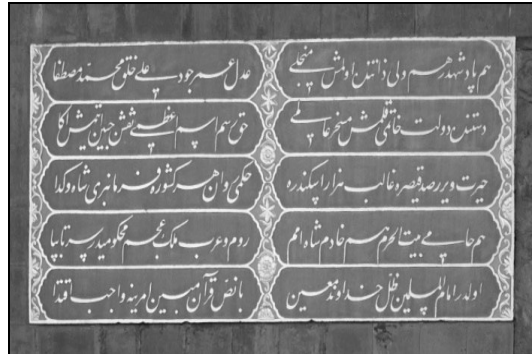 هم پادشهدر هم ولی ذاتنن اولمش منجلے
عدل عمر جود علے خلق محمد مصطفا
دستنن دولت خاتمی قلمش مسخر عالمے
حق رسم اسم اعظمے نقش جبین اتمش اکا
حیرت ویرر صد قیصره غالب هزار اسکندره
حکمی روان هر کشوره فرمانبری شاه و کدا
هم حامی بیت الحرم هم خادم شاه امم
روم و عرب ملک عجم محکومیدر سرتابپا
اولدر امام المسلمین ظل خداوند معین
با نص قرآن مبین امرینه واجب اقتدا